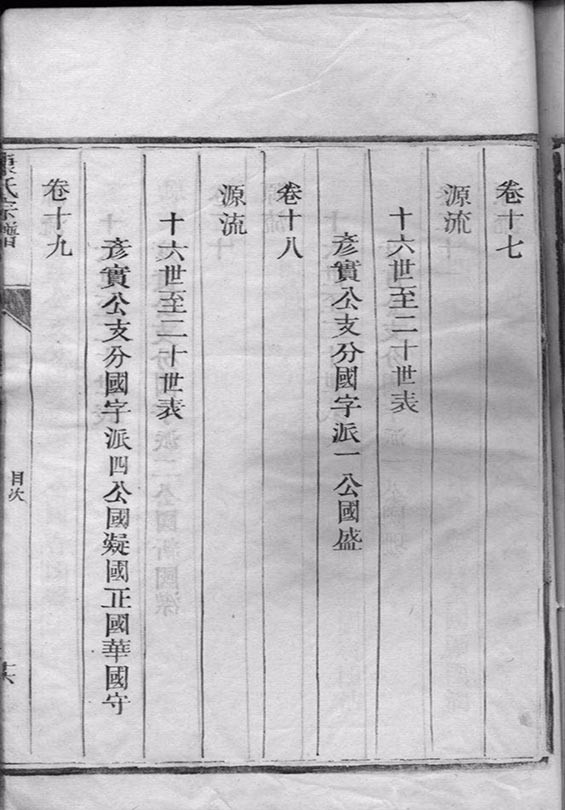 卷十七
源流
十六世至二十世表
彥實公支分國字派一公國盛
卷十八
源流
十六世至二十世表
彥實公支分國字派四公國凝國正國華國守
卷十九
氏宗譜
目次